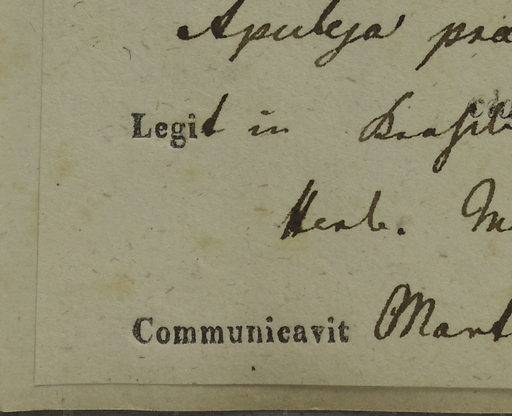 Apuleja pra
Legit in Brasil
Herb. M
Communicavit Mart